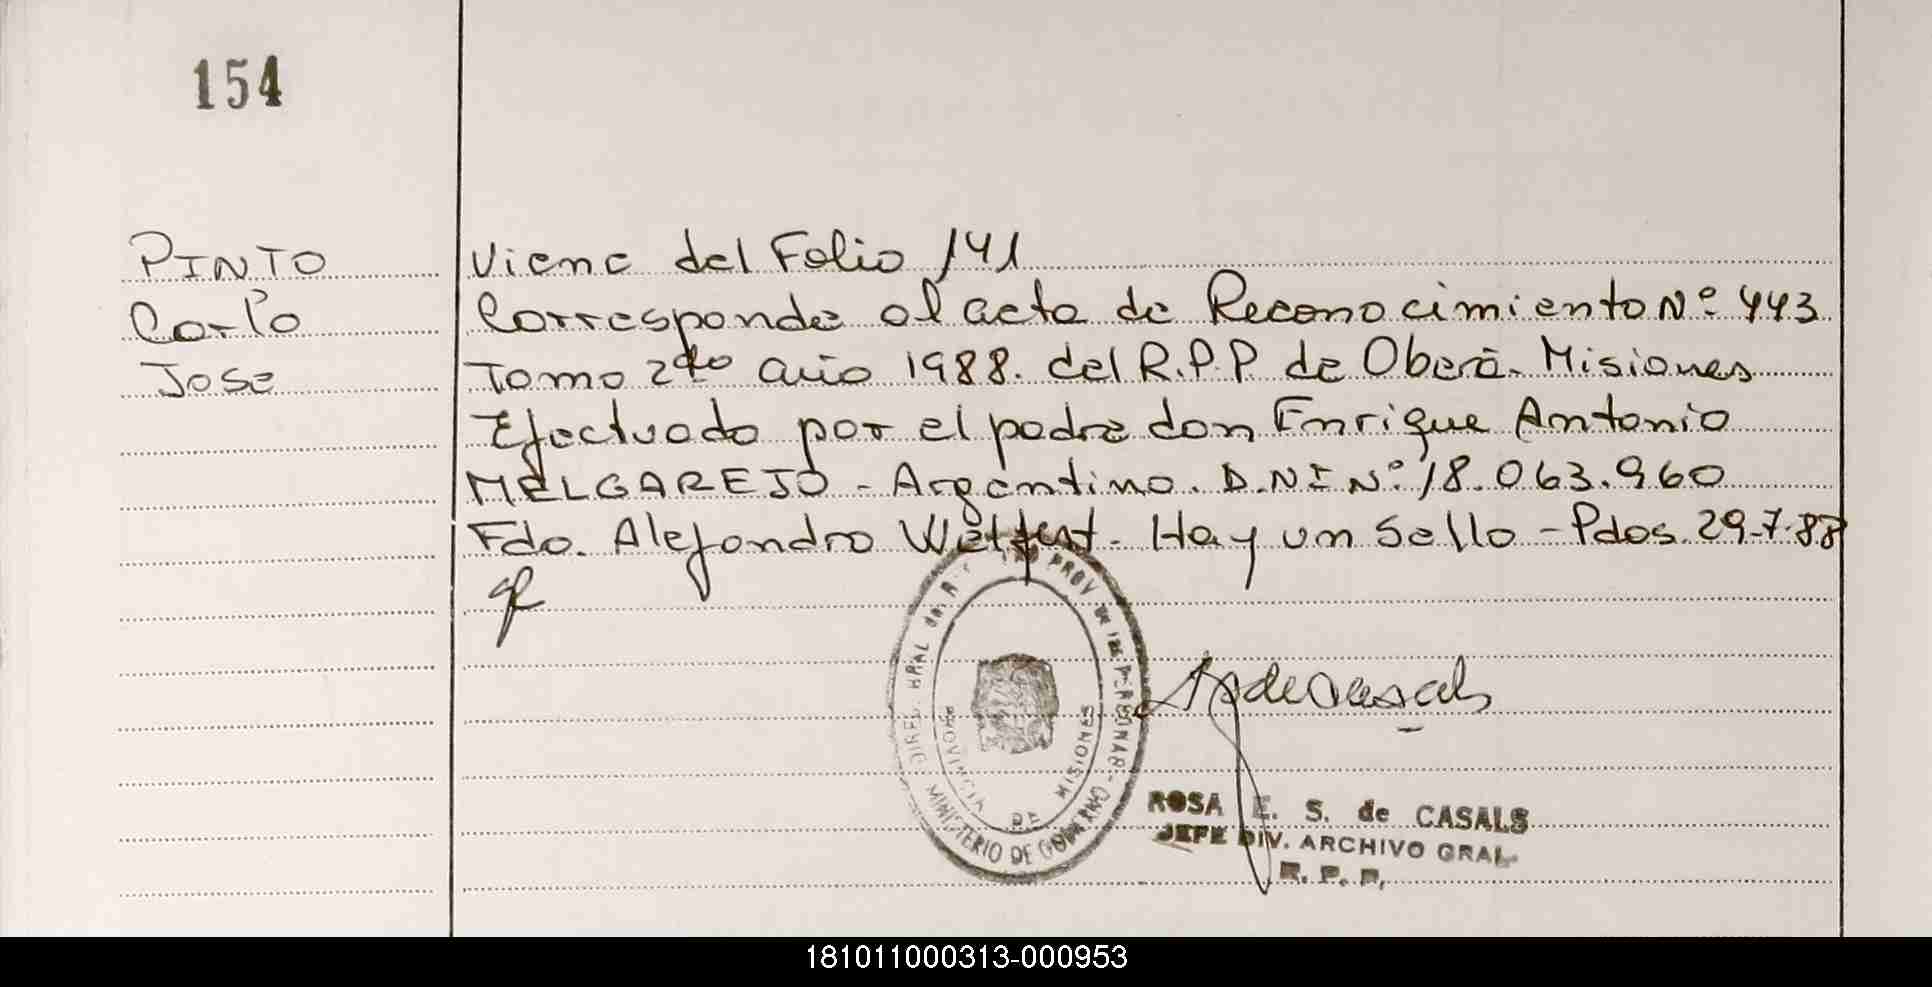 154
PINTO
Carlo
Jose
Viene del Folio 141
Corresponde al acta de Reconocimiento Nº 443
Tomo 2do año 1988. del R.P.P. de Oberá. Misiones
Efectuado por el padre don Enrique Antonio
MELGAREJO - Argentino. D.N.I Nº 18.063.960
Fdo. Alejandro - Hay un Sello - Pdos. 29-7-88
DIREC. GRAL de PROV. DE LAS PERSONAS
MINISTERIO DE GOBIERNO
PROVINCIA DE MISIONES
ROSA E. S. de CASALS
JEFE DIV. ARCHIVO GRAL.
R. P. P.
181011000313-000953